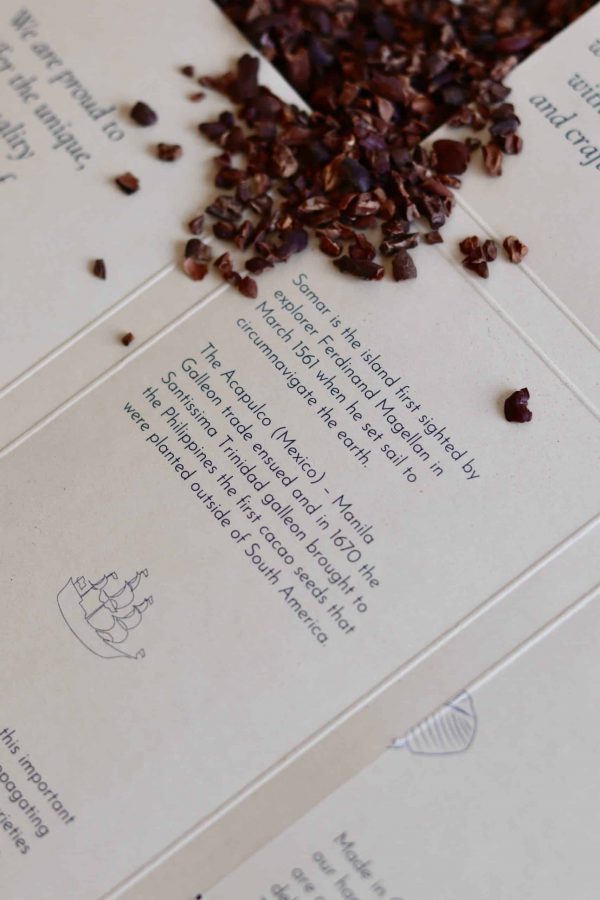 We are proud to
the unique,
Samar is the island first sighted by
explorer Ferdinand Magellan in
March 1561 when he set sail to
circumnavigate the earth.
The Acapulco (Mexico) - Manila
Galleon trade ensued and in 1670 the
Santissima Trinidad galleon brought to
the Philippines the first cacao seeds that
were planted outside of South America.
this important
Made in
our
are